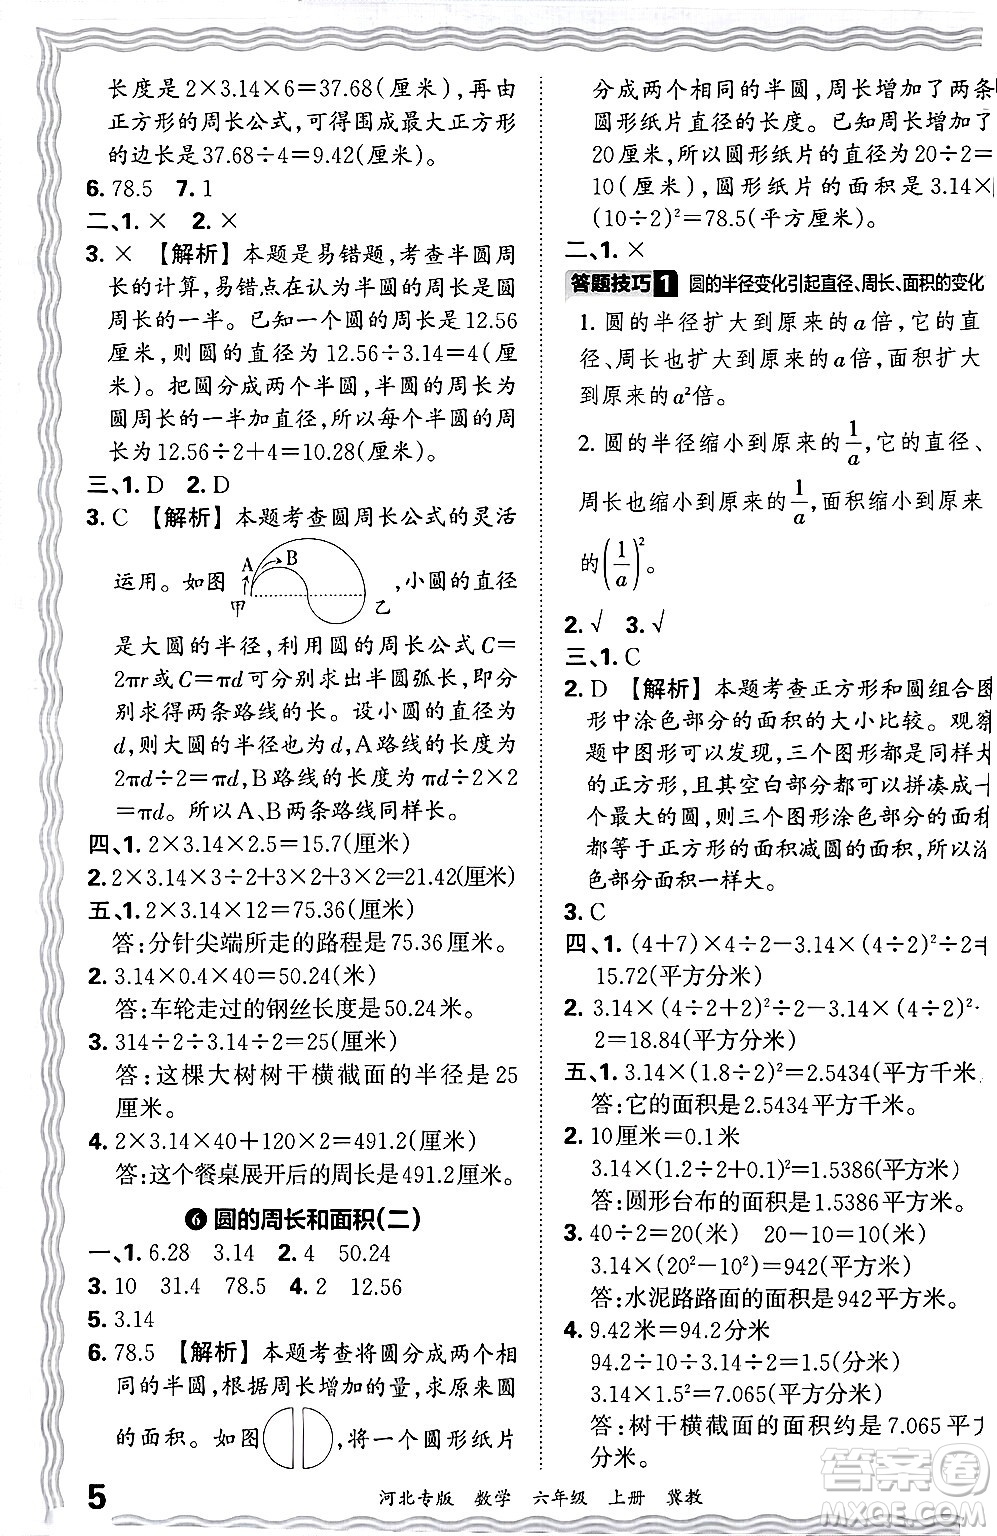 长度是2×3.14×6=37.68(厘米),再由
正方形的周长公式,可得围成最大正方形
的边长是37.68÷4=9.42(厘米)。
6. 78.5 7. 1
二、1. × 2. ×
3. × 【解析】本题是易错题,考查半圆周
长的计算,易错点在认为半圆周长是圆
周长的一半。已知一个圆的周长是12.56
厘米,则圆的直径为12.56÷3.14=4(厘
米)。把圆分成两个半圆,半圆的周长为
圆周长的一半加直径,所以每个半圆的周
长为12.56÷2+4=10.28(厘米)。
三、1. D 2. D
3. C 【解析】本题考查圆周长公式的灵活
运用。如图 A B 甲 乙 ,小圆的直径
是大圆的半径,利用圆的周长公式C=
2πr或C=πd可分别求出半圆弧长,即分
别求得两条路线的长。设小圆的直径为
d,则大圆的半径也为d,A路线的长度为
2πd÷2=πd,B路线的长度为πd÷2×2
=πd。所以A、B两条路线同样长。
四、1. 2×3.14×2.5=15.7(厘米)
2. 2×3.14×3÷2+3×2+3×2=21.42(厘米)
五、1. 2×3.14×12=75.36(厘米)
答:分针尖端所走的路程是75.36厘米。
2. 3.14×0.4×40=50.24(米)
答:车轮走过的钢丝长度是50.24米。
3. 314÷2÷3.14÷2=25(厘米)
答:这棵大树树干横截面的半径是25
厘米。
4. 2×3.14×40+120×2=491.2(厘米)
答:这个餐桌展开后的周长是491.2厘米。
❻ 圆的周长和面积(二)
一、1. 6.28 3.14 2. 4 50.24
3. 10 31.4 78.5 4. 2 12.56
5. 3.14
6. 78.5 【解析】本题考查将圆分成两个相
同的半圆,根据周长增加的量,求原来圆
的面积。如图 ,将一个圆形纸片
分成两个相同的半圆,周长增加了两条
圆形纸片直径的长度。已知周长增加了
20厘米,所以圆形纸片的直径为20÷2=
10(厘米),圆形纸片的面积是3.14×
(10÷2)²=78.5(平方厘米)。
二、1. ×
答题技巧1 圆的半径变化引起直径、周长、面积的变化
1. 圆的半径扩大到原来的a倍,它的直
径、周长也扩大到原来的a倍,面积扩大
到原来的a²倍。
2. 圆的半径缩小到原来的1/a,它的直径、
周长也缩小到原来的1/a,面积缩小到原来
的(1/a)²。
2. √ 3. √
三、1. C
2. D 【解析】本题考查正方形和圆组合图
形中涂色部分的面积的大小比较。观察
题中图形可以发现,三个图形都是同样大
的正方形,且其空白部分都可以拼凑成一
个最大的圆,则三个图形涂色部分的面积
都等于正方形的面积减圆的面积,所以涂
色部分面积一样大。
3. C
四、1. (4+7)×4÷2-3.14×(4÷2)²÷2=
15.72(平方分米)
2. 3.14×(4÷2+2)²÷2-3.14×(4÷2)²÷
2=18.84(平方分米)
五、1. 3.14×(1.8÷2)²=2.5434(平方千米)
答:它的面积是2.5434平方千米。
2. 10厘米=0.1米
3.14×(1.2÷2+0.1)²=1.5386(平方米)
答:圆形台布的面积是1.5386平方米。
3. 40÷2=20(米) 20-10=10(米)
3.14×(20²-10²)=942(平方米)
答:水泥路路面的面积是942平方米。
4. 9.42米=94.2分米
94.2÷10÷3.14÷2=1.5(分米)
3.14×1.5²=7.065(平方分米)
答:树干横截面的面积约是7.065平方
分米。
5 河北专版 数学 六年级 上册 冀教
答案圈
MXQE.COM